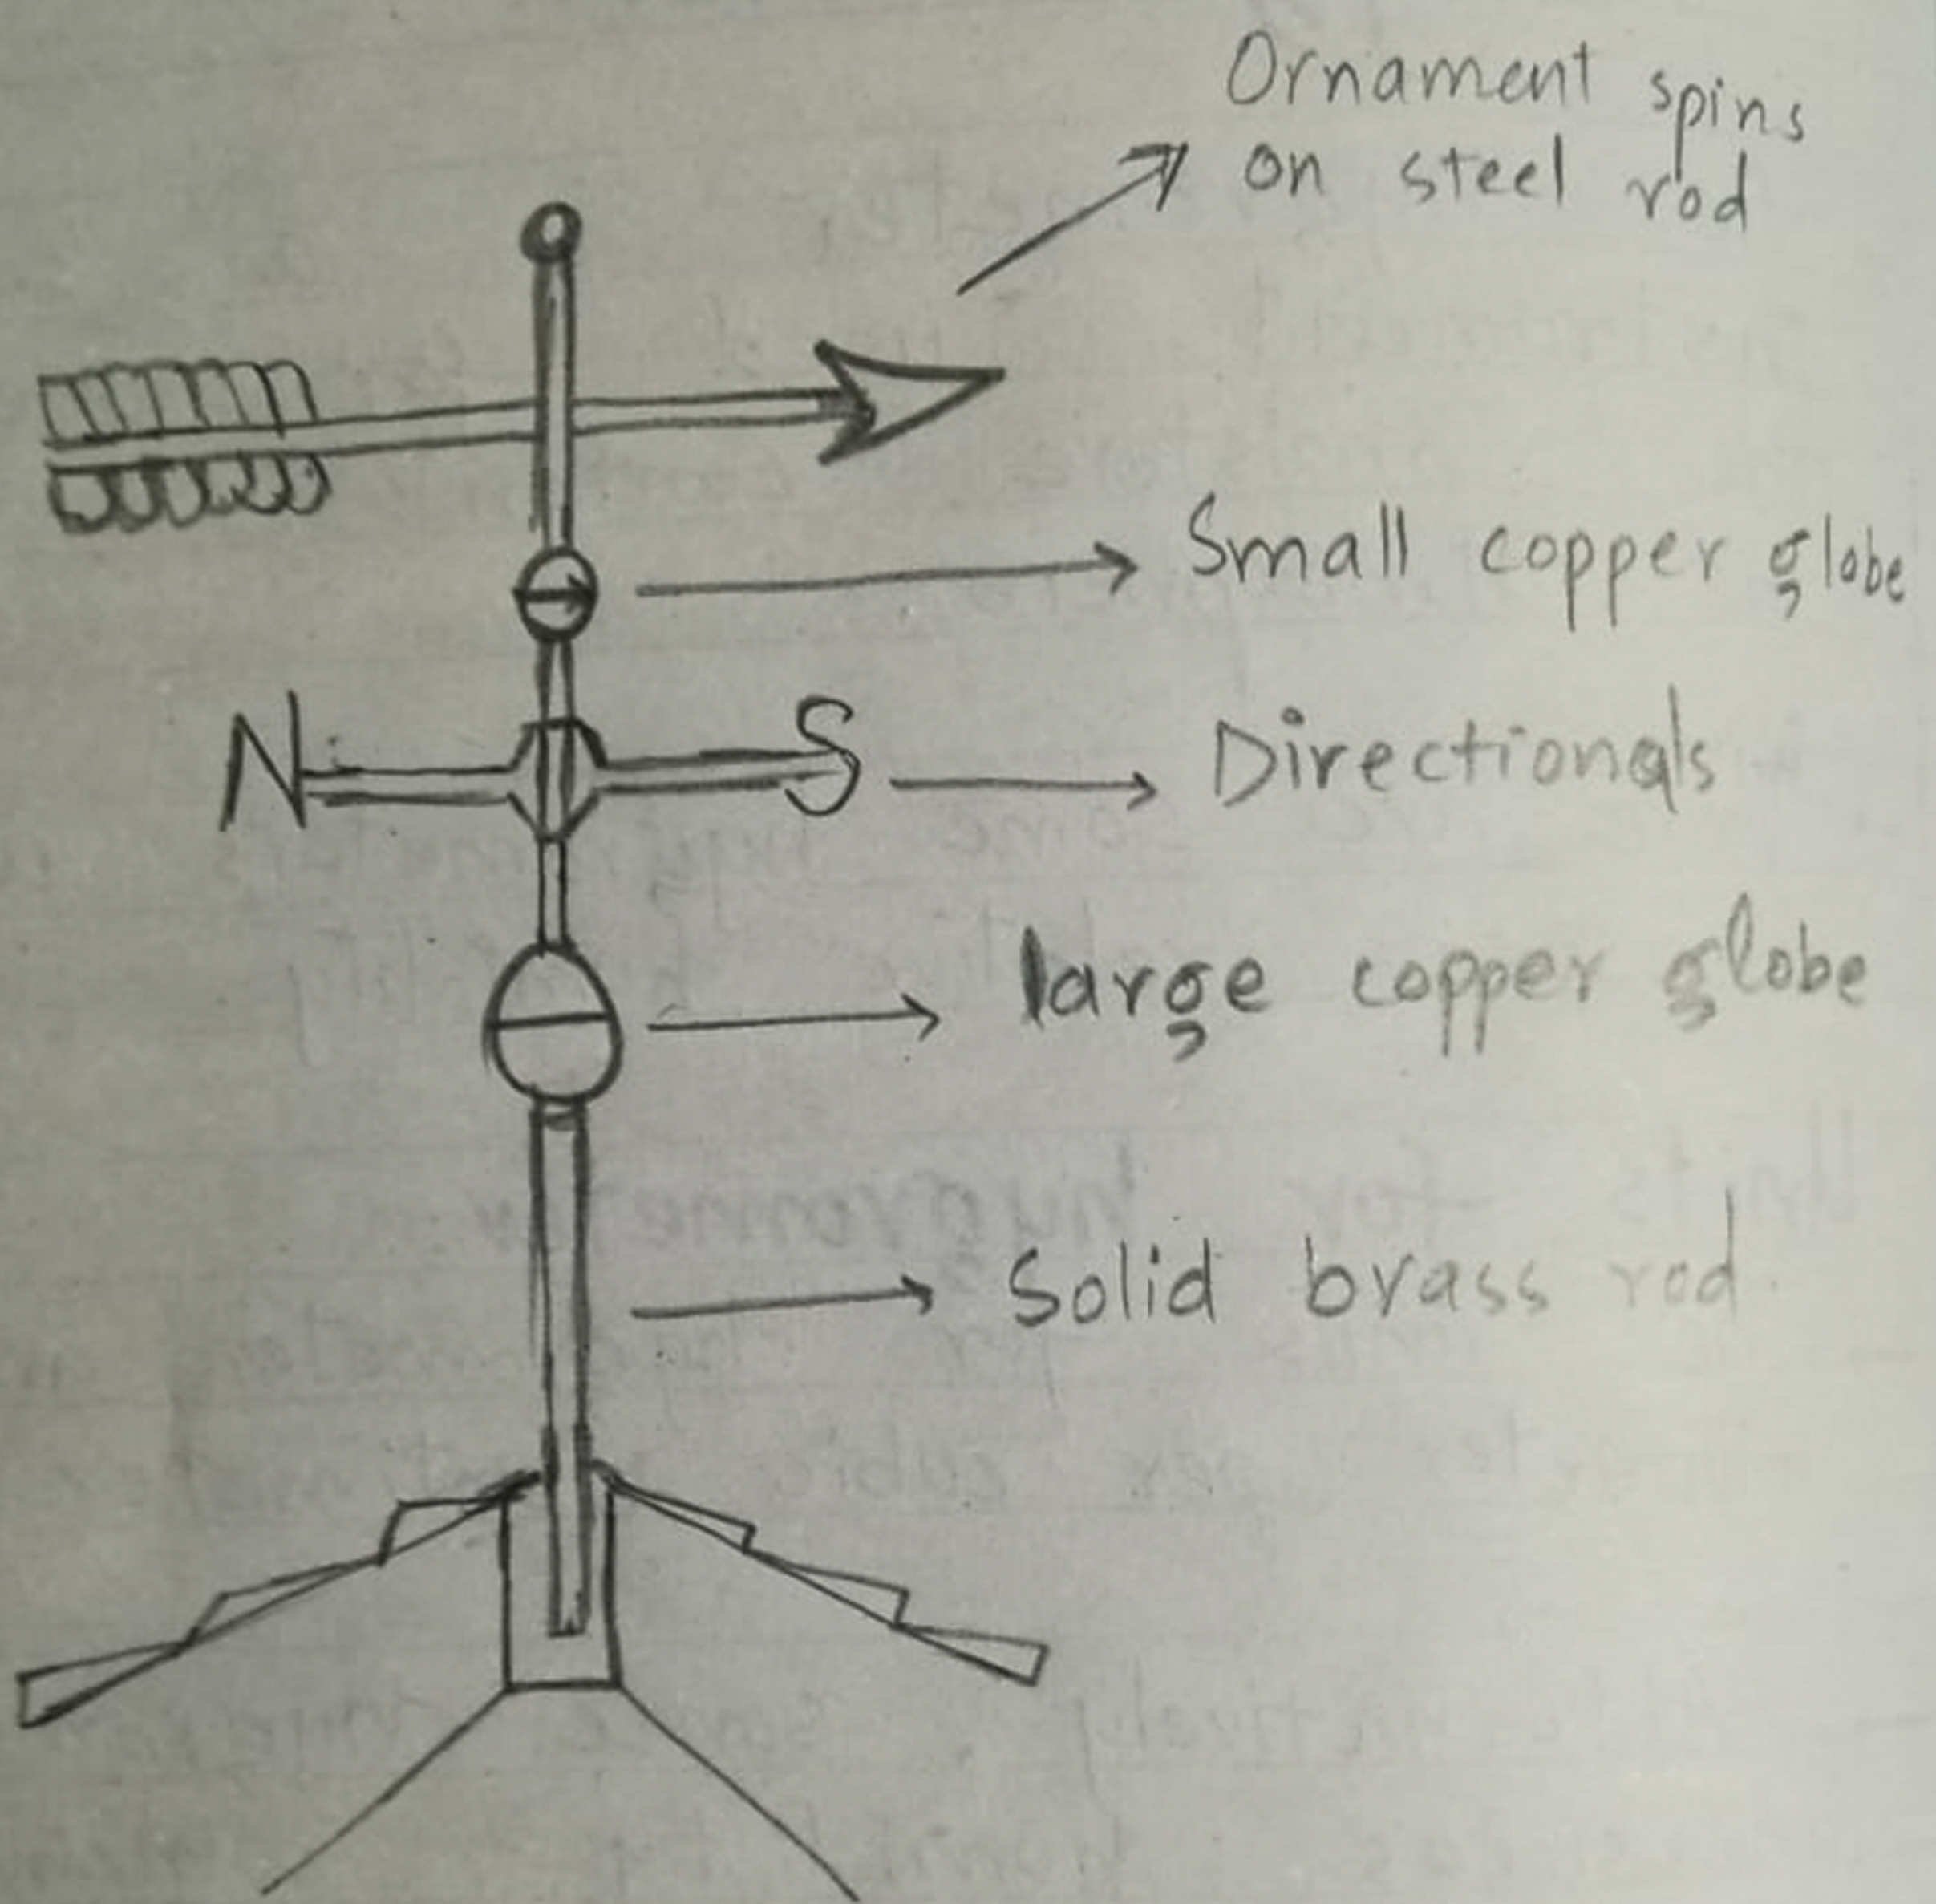 Ornament spins
on steel rod
Small copper globe
N S
Directionals
large copper globe
Solid brass rod